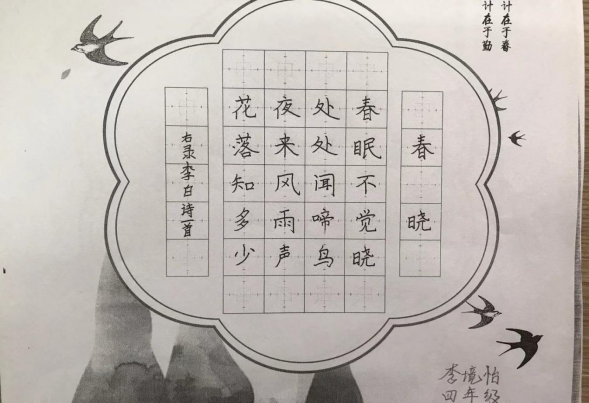 计在于春
计在于勤
春晓
春眠不觉晓
处处闻啼鸟
夜来风雨声
花落知多少
右录李白诗一首
李境怡
四年级